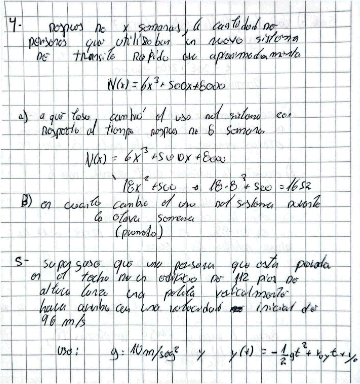 4- Despues de x semanas, la cantidad de
personas que utilizaban un nuevo sistema
de transito rapido era aproximadamente
N(x) = 6x³ + 500x + 8000
a) a que tasa, cambió el uso del sistema con
respecto al tiempo despues de 8 semanas
N(x) = 6x³ + 500x + 8000
18x² + 500 → 18·8² + 500 = 1652
B) en cuanto cambio el uso del sistema durante
la otava semana
5- supongase que una persona que esta parada
en el techo de un edificio de 112 pies de
altura lanza una pelota verticalmente
hacia arriba con una velocidad inicial de
96 m/s
uso: g = 10 m/seg² y y(t) = -1/2 gt² + v₀t + y₀